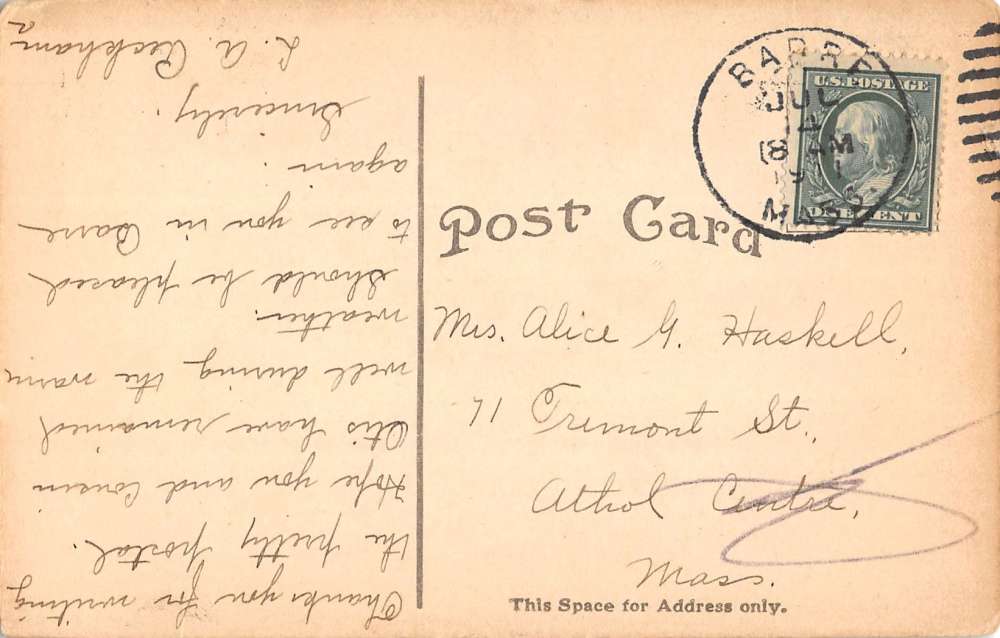 Thank you for writing
the pretty postal.
Hope you and cousin
Otis have remained
well during the warm
weather.
Should be pleased
to see you in Barre
again
Sincerely.
L. A. Peckham
BARRE
JUL
4
8 AM
191
MASS
U.S. POSTAGE
ONE CENT
Post Card
Mrs. Alice G. Haskell,
71 Tremont St.,
Athol Centre,
Mass.
This Space for Address only.